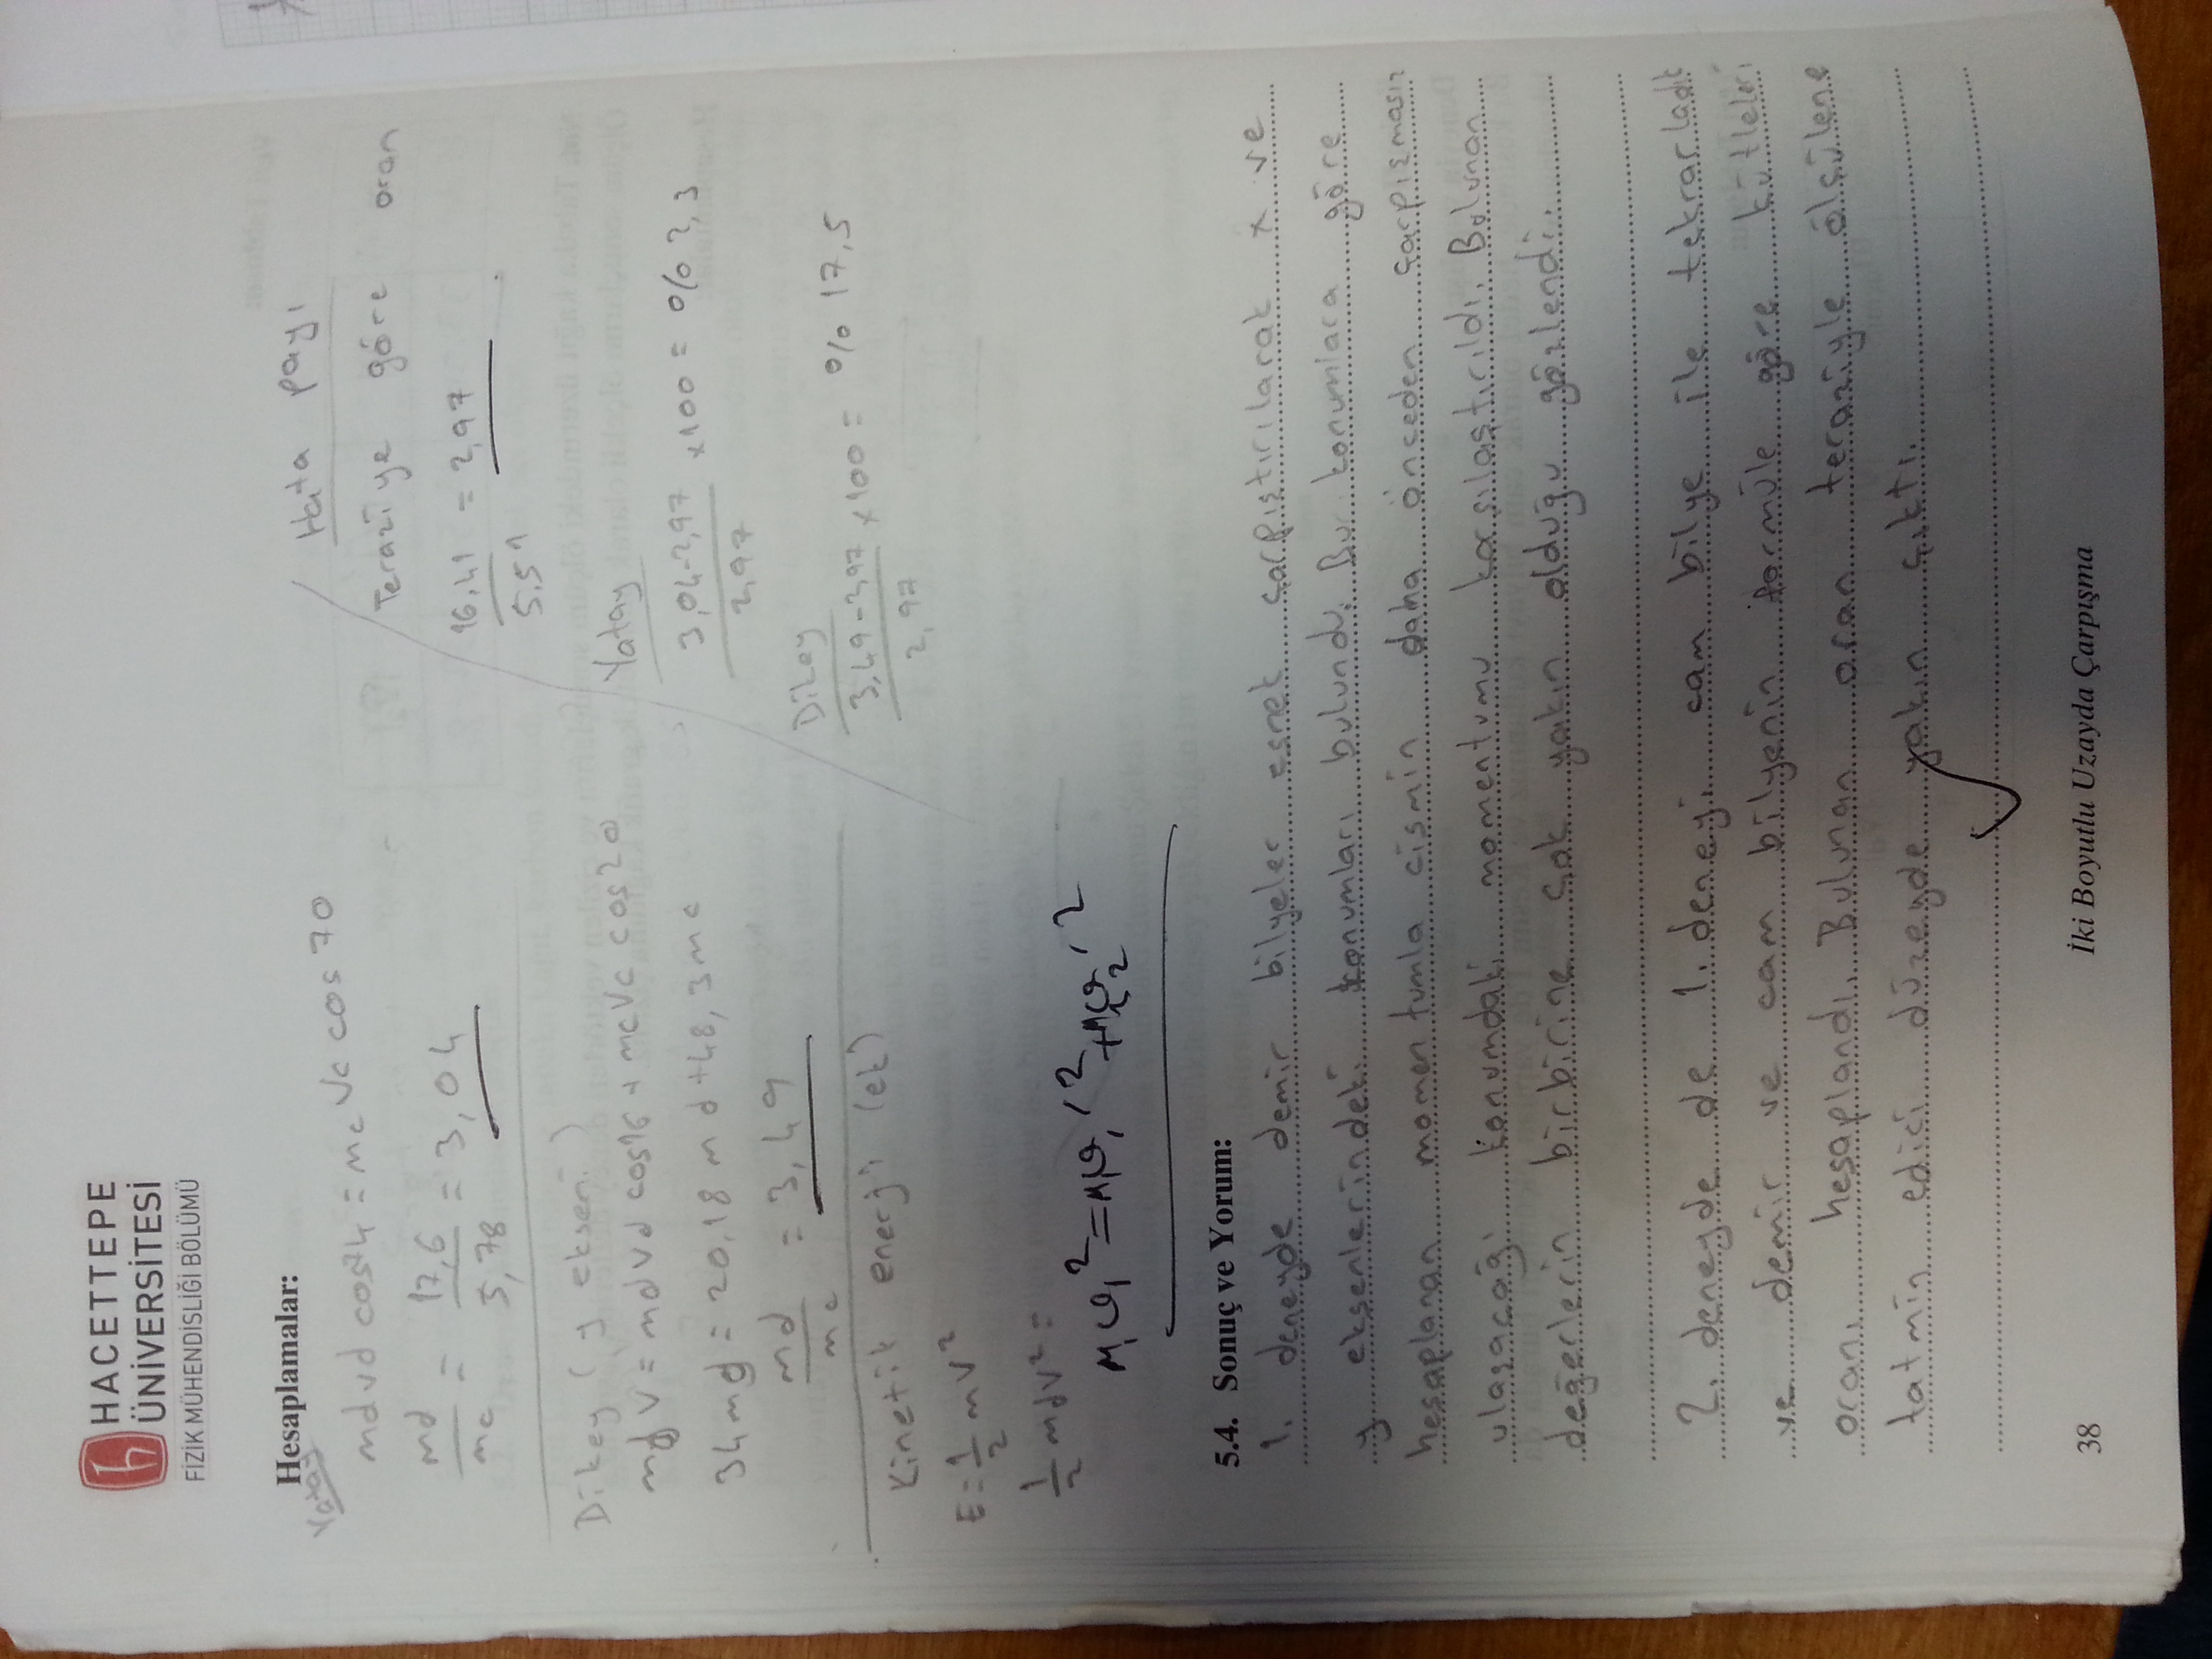 HACETTEPE
ÜNİVERSİTESİ
FİZİK MÜHENDİSLİĞİ BÖLÜMÜ
Hesaplamalar:
Yatay
mdvd cos74 = mc Vc cos 70
md/mc = 17,6/5,78 = 3,04
Dikey (y ekseni)
md V = md Vd cos16 + mc Vc cos20
34 md = 20,18 md + 48,3 mc
md/mc = 3,49
Kinetik enerji (ek)
E = 1/2 mV²
1/2 mdV² =
M₁υ₁² = M₁υ₁'² + M₂υ₂'²
Hata payı
Teraziye göre oran
16,41/5,51 = 2,97
Yatay
3,04-2,97/2,97 x100 = %2,3
Dikey
3,49-2,97/2,97 x100 = % 17,5
5.4. Sonuç ve Yorum:
1. deneyde demir bilyeler esnek çarpıştırılarak x ve
y eksenlerindeki konumları bulundu. Bu konumlara göre
hesaplanan momentumla cismin daha önceden çarpışmasız
ulaşacağı konumdaki momentumu karşılaştırıldı. Bulunan
değerlerin birbirine çok yakın olduğu gözlendi.
2. deneyde de 1. deneyi cam bilye ile tekrarladık
ve demir ve cam bilyenin formüle göre kütleleri
oranı hesaplandı. Bulunan oran teraziyle ölçülene
tatmin edici düzeyde yakın çıktı.
38
İki Boyutlu Uzayda Çarpışma